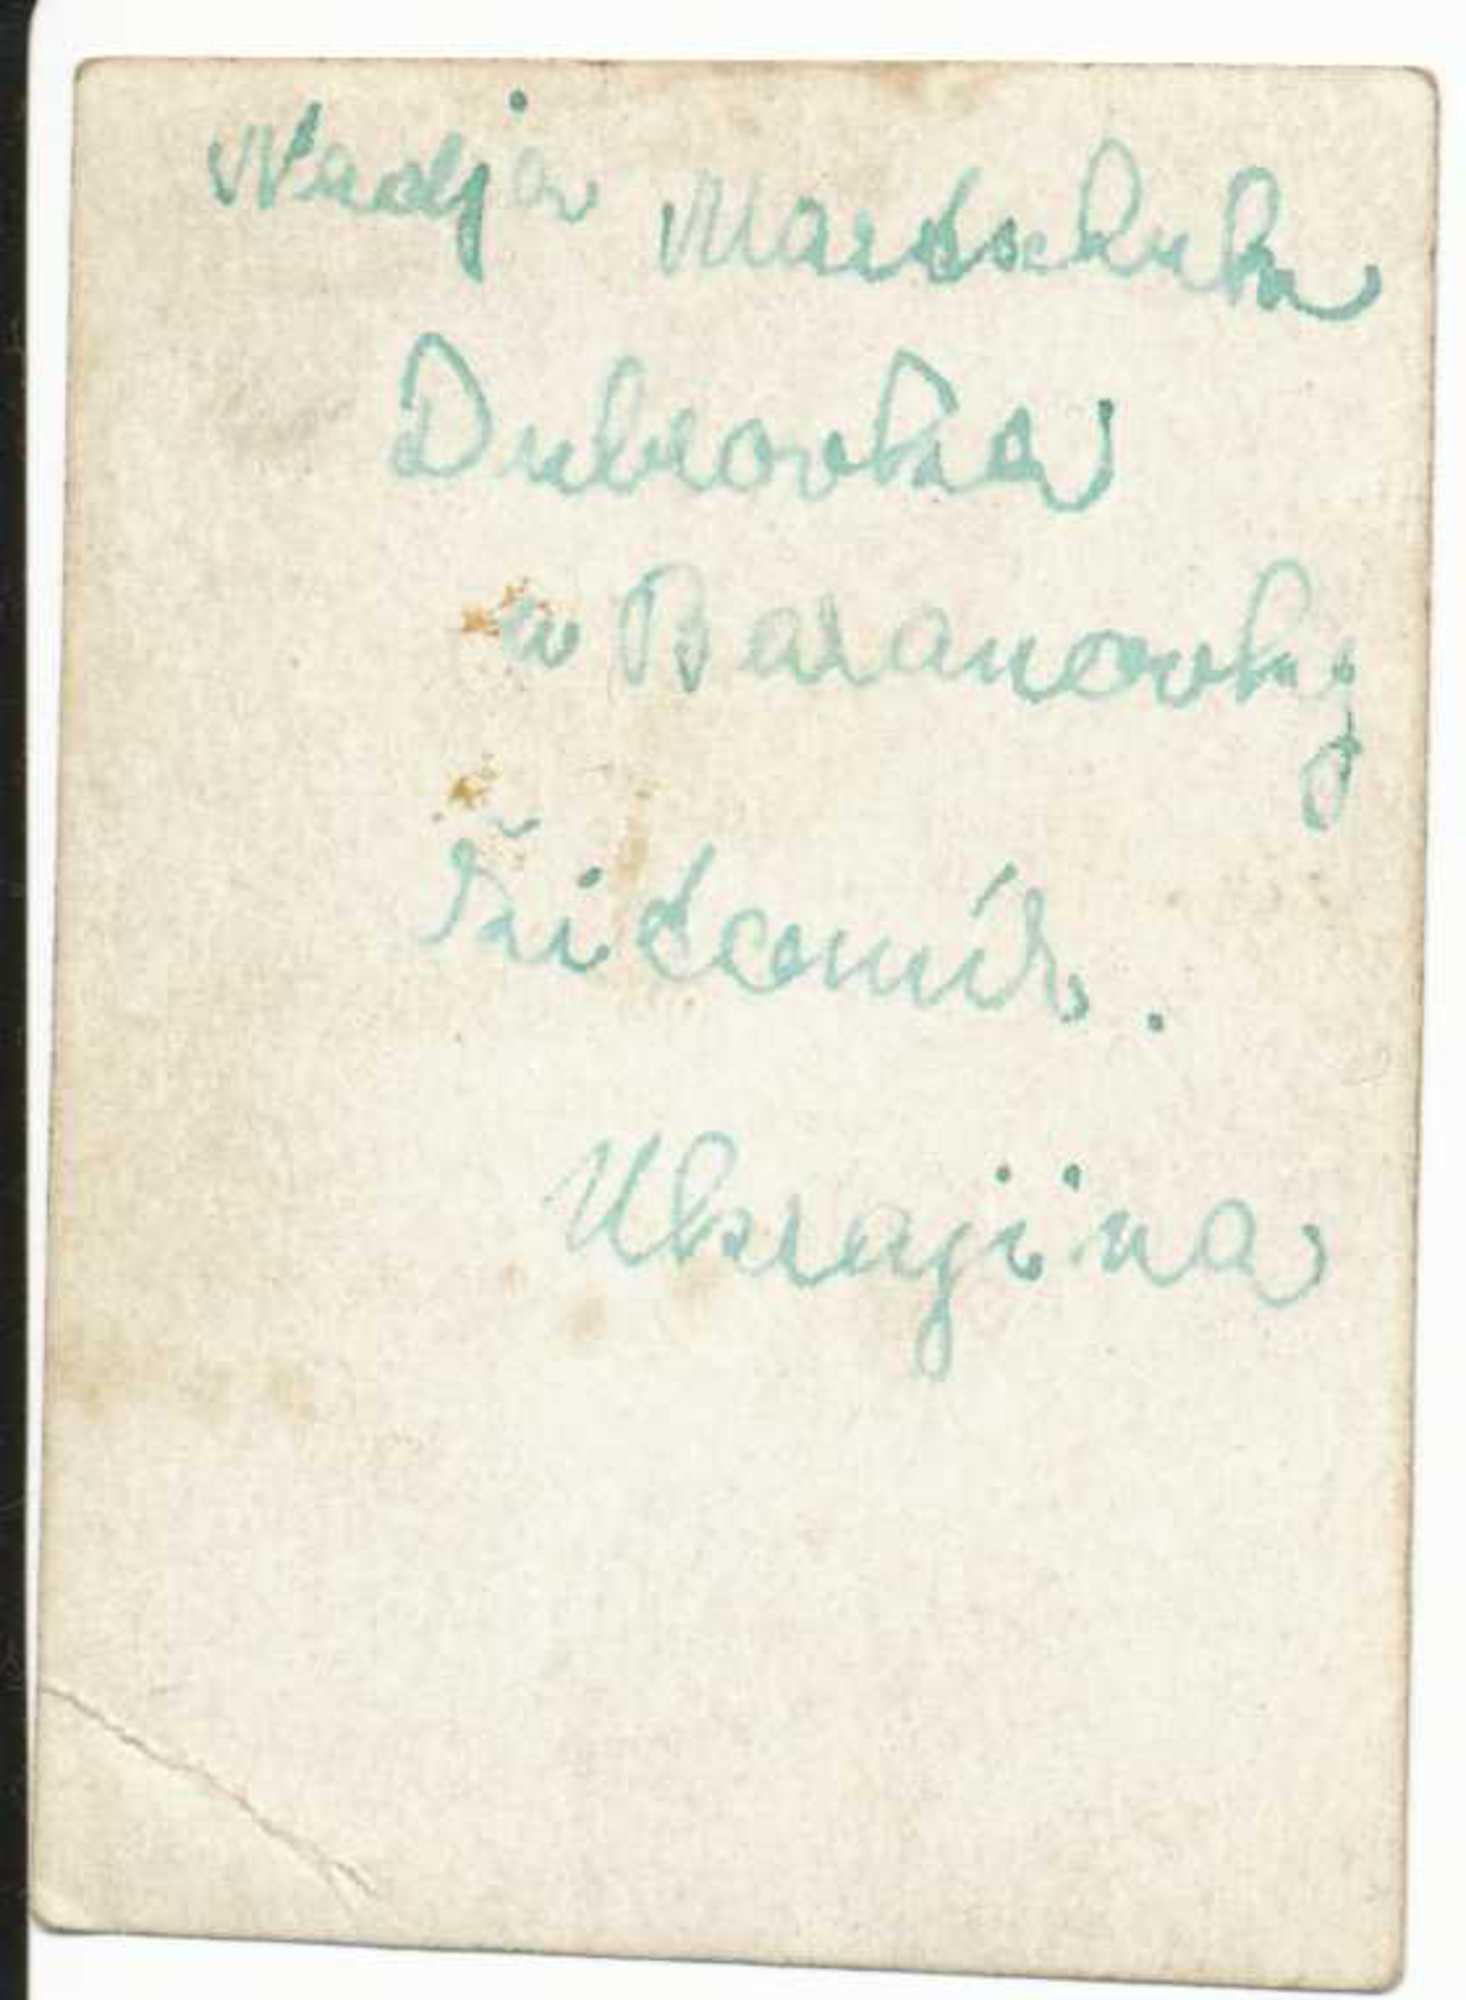 Nadja Martschuk
Dubrovka
u Baranovky
Žitomír.
Ukrajina